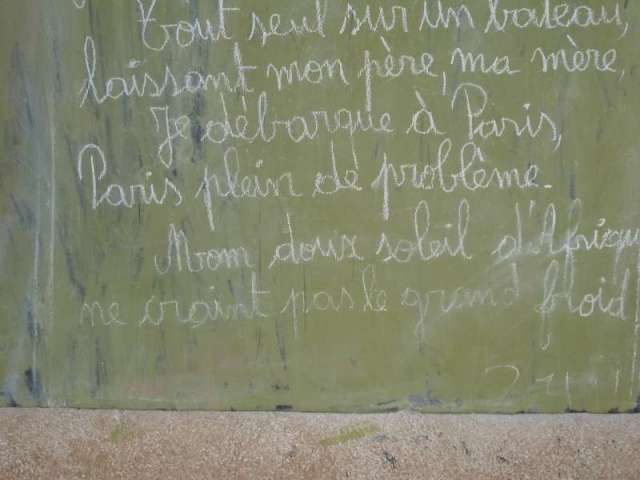 Tout seul sur un bateau,
laissant mon père, ma mère,
Je débarque à Paris,
Paris plein de problême.
Mom doux soleil d'Afriqu
ne craint pas le grand froid
24